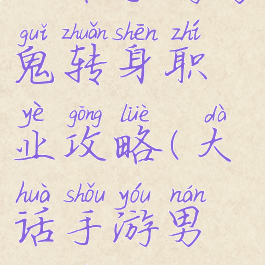 guǐ zhuǎn shēn zhí
鬼转身职
yè gōng lüè dà
业攻略(大
huà shǒu yóu nán
话手游男